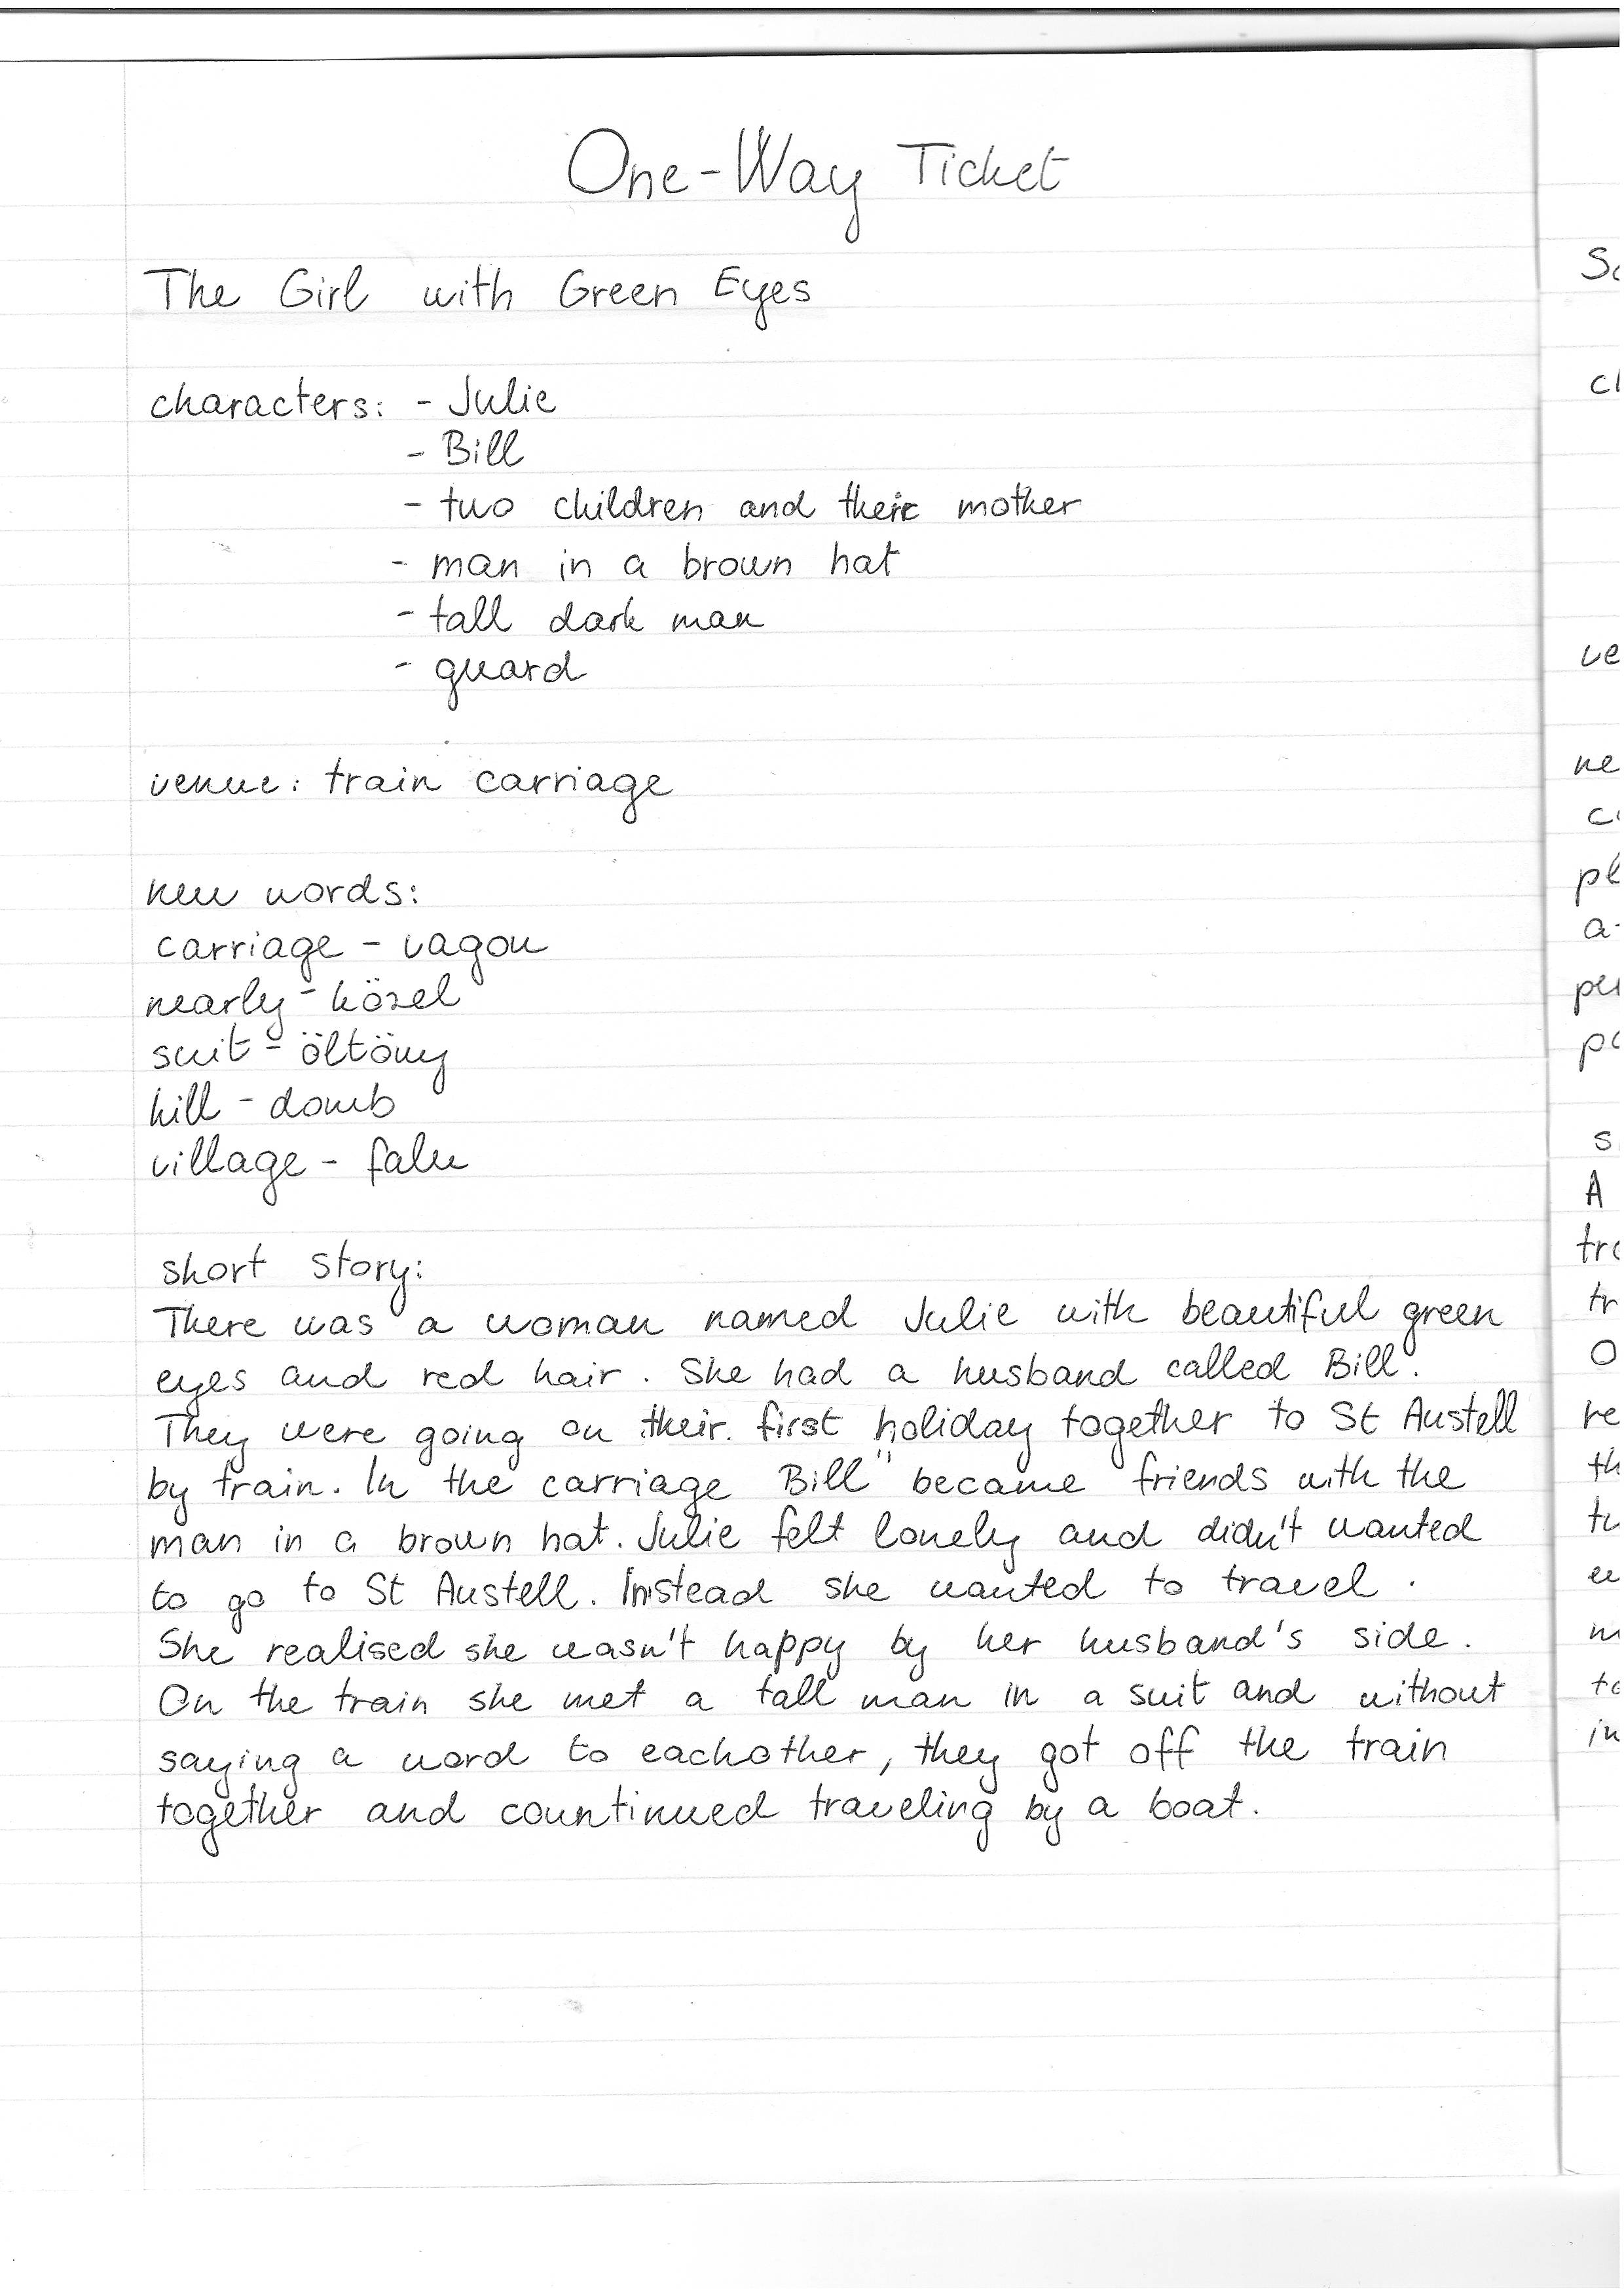 One-Way Ticket
The Girl with Green Eyes
characters: - Julie
- Bill
- two children and their mother
- man in a brown hat
- tall dark man
- guard
venue: train carriage
new words:
carriage - vagon
nearly - közel
suit - öltöny
hill - domb
village - falu
short story:
There was a woman named Julie with beautiful green
eyes and red hair. She had a husband called Bill.
They were going on their first holiday together to St Austell
by train. In the carriage Bill became friends with the
man in a brown hat. Julie felt lonely and didn't wanted
to go to St Austell. Instead she wanted to travel.
She realised she wasn't happy by her husband's side.
On the train she met a tall man in a suit and without
saying a word to eachother, they got off the train
together and countinued traveling by a boat.